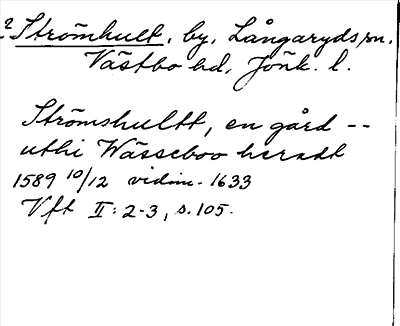 2 Strömhult, by, Långaryds sn.
Västbo hd, Jönk. l.
Strömshultt, en gård --
uthi Wässeboo heradt
1589 10/12 vidim. 1633
Vft II: 2-3, s. 105.